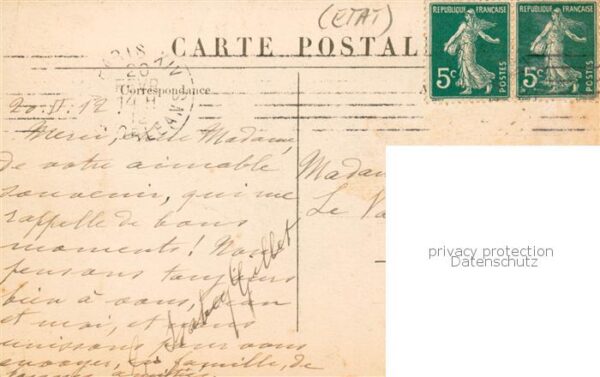 (ETAT)
REPUBLIQUE FRANÇAISE
REPUBLIQUE FRANÇAISE
5c
POSTES
5c
POSTES
CARTE POSTAL
Correspondance
PARIS
20
14 H
12
20.II.12
Merci, Madame,
de votre aimable
souvenir, qui me
rappelle de bons
moments! Nous
pensons toujours
bien à vous, Jean
et moi, et nous
unissons pour vous
envoyer, en famille, de
Madam
Le Va
privacy protection
Datenschutz